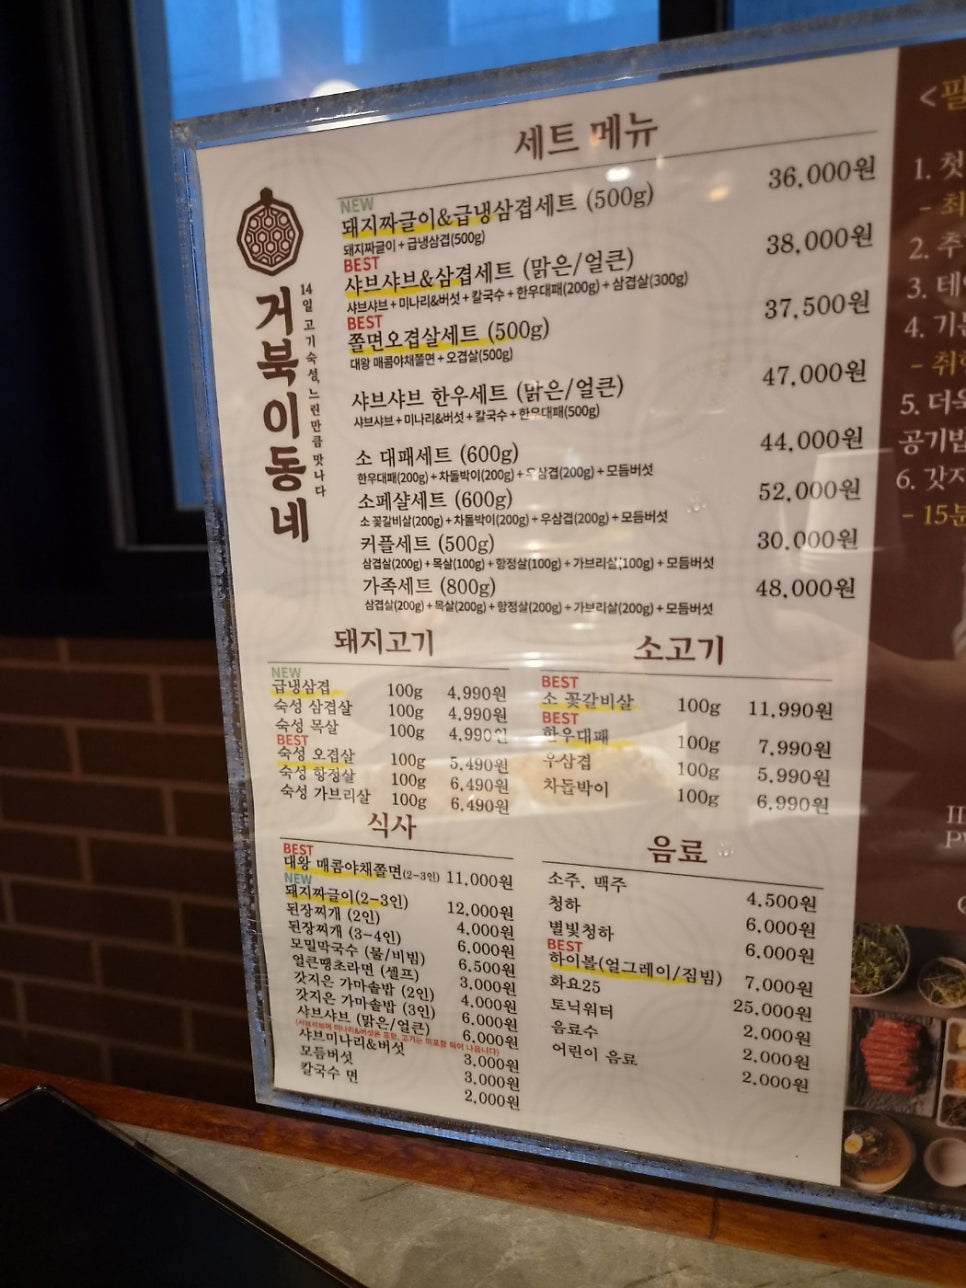 거북이동네
14일 고기숙성, 느린만큼 맛나다
세트 메뉴
NEW
돼지짜글이&급냉삼겹세트 (500g) 36,000원
돼지짜글이 + 급냉삼겹(500g)
BEST
샤브샤브&삼겹세트 (맑은/얼큰) 38,000원
샤브샤브 + 미나리&버섯 + 칼국수 + 한우대패(200g) + 삼겹살(300g)
BEST
쫄면오겹살세트 (500g) 37,500원
대왕 매콤야채쫄면 + 오겹살(500g)
샤브샤브 한우세트 (맑은/얼큰) 47,000원
샤브샤브 + 미나리&버섯 + 칼국수 + 한우대패(500g)
소 대패세트 (600g) 44,000원
한우대패(200g) + 차돌박이(200g) + 우삼겹(200g) + 모듬버섯
소페샬세트 (600g) 52,000원
소 꽃갈비살(200g) + 차돌박이(200g) + 우삼겹(200g) + 모듬버섯
커플세트 (500g) 30,000원
삼겹살(200g) + 목살(100g) + 항정살(100g) + 가브리살(100g) + 모듬버섯
가족세트 (800g) 48,000원
삼겹살(200g) + 목살(200g) + 항정살(200g) + 가브리살(200g) + 모듬버섯
돼지고기
NEW
급냉삼겹 100g 4,990원
숙성 삼겹살 100g 4,990원
숙성 목살 100g 4,990원
BEST
숙성 오겹살 100g 5,490원
숙성 항정살 100g 6,490원
숙성 가브리살 100g 6,490원
소고기
BEST
소 꽃갈비살 100g 11,990원
BEST
한우대패 100g 7,990원
우삼겹 100g 5,990원
차돌박이 100g 6,990원
식사
BEST
대왕 매콤야채쫄면(2-3인) 11,000원
NEW
돼지짜글이(2-3인) 12,000원
된장찌개 (2인) 4,000원
된장찌개 (3-4인) 6,000원
모밀막국수 (물/비빔) 6,500원
얼큰땡초라면 (셀프) 3,000원
갓지은 가마솥밥 (2인) 4,000원
갓지은 가마솥밥 (3인) 6,000원
샤브샤브 (맑은/얼큰) 6,000원
샤브미나리&버섯 3,000원
모듬버섯 3,000원
칼국수 면 2,000원
음료
소주, 맥주 4,500원
청하 6,000원
별빛청하 6,000원
BEST
하이볼(얼그레이/짐빔) 7,000원
화요25 25,000원
토닉워터 2,000원
음료수 2,000원
어린이 음료 2,000원
1. 첫
2. 추
3. 테
4. 기
- 취
5. 더욱
공기밥
6. 갓지
- 15분